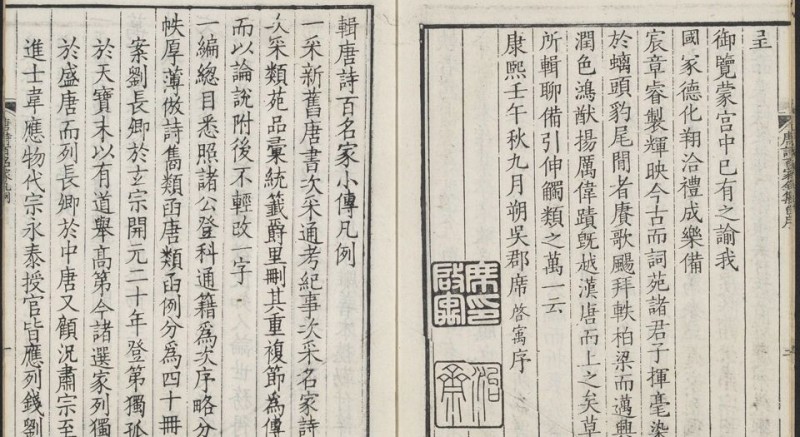 呈
御覽蒙宫中已有之諭我
國家德化翔洽禮成樂備
宸章睿製輝映今古而詞苑諸君子揮毫染
於螭頭豹尾間者賡歌颺拜軼柏梁而邁興
潤色鴻猷揚厲偉蹟旣越漢唐而上之矣草
所輯聊備引伸觸類之萬一云
康熙壬午秋九月朔吳郡席啓寓序
席印啟寓
輯唐詩百名家小傳凡例
一采新舊唐書次采通考紀事次采名家詩
次采類苑品彙統籤爵里刪其重複節爲傳
而以論說附後不輕改一字
一編總目悉照諸公登科通籍爲次序略分
帙厚薄倣詩雋類函唐類函例分爲四十冊
案劉長卿於玄宗開元二十年登第獨孤
於天寶末以有道舉高第今諸選家列獨
於盛唐而列長卿於中唐又顧況肅宗至
進士韋應物代宗永泰授官皆應列錢劉